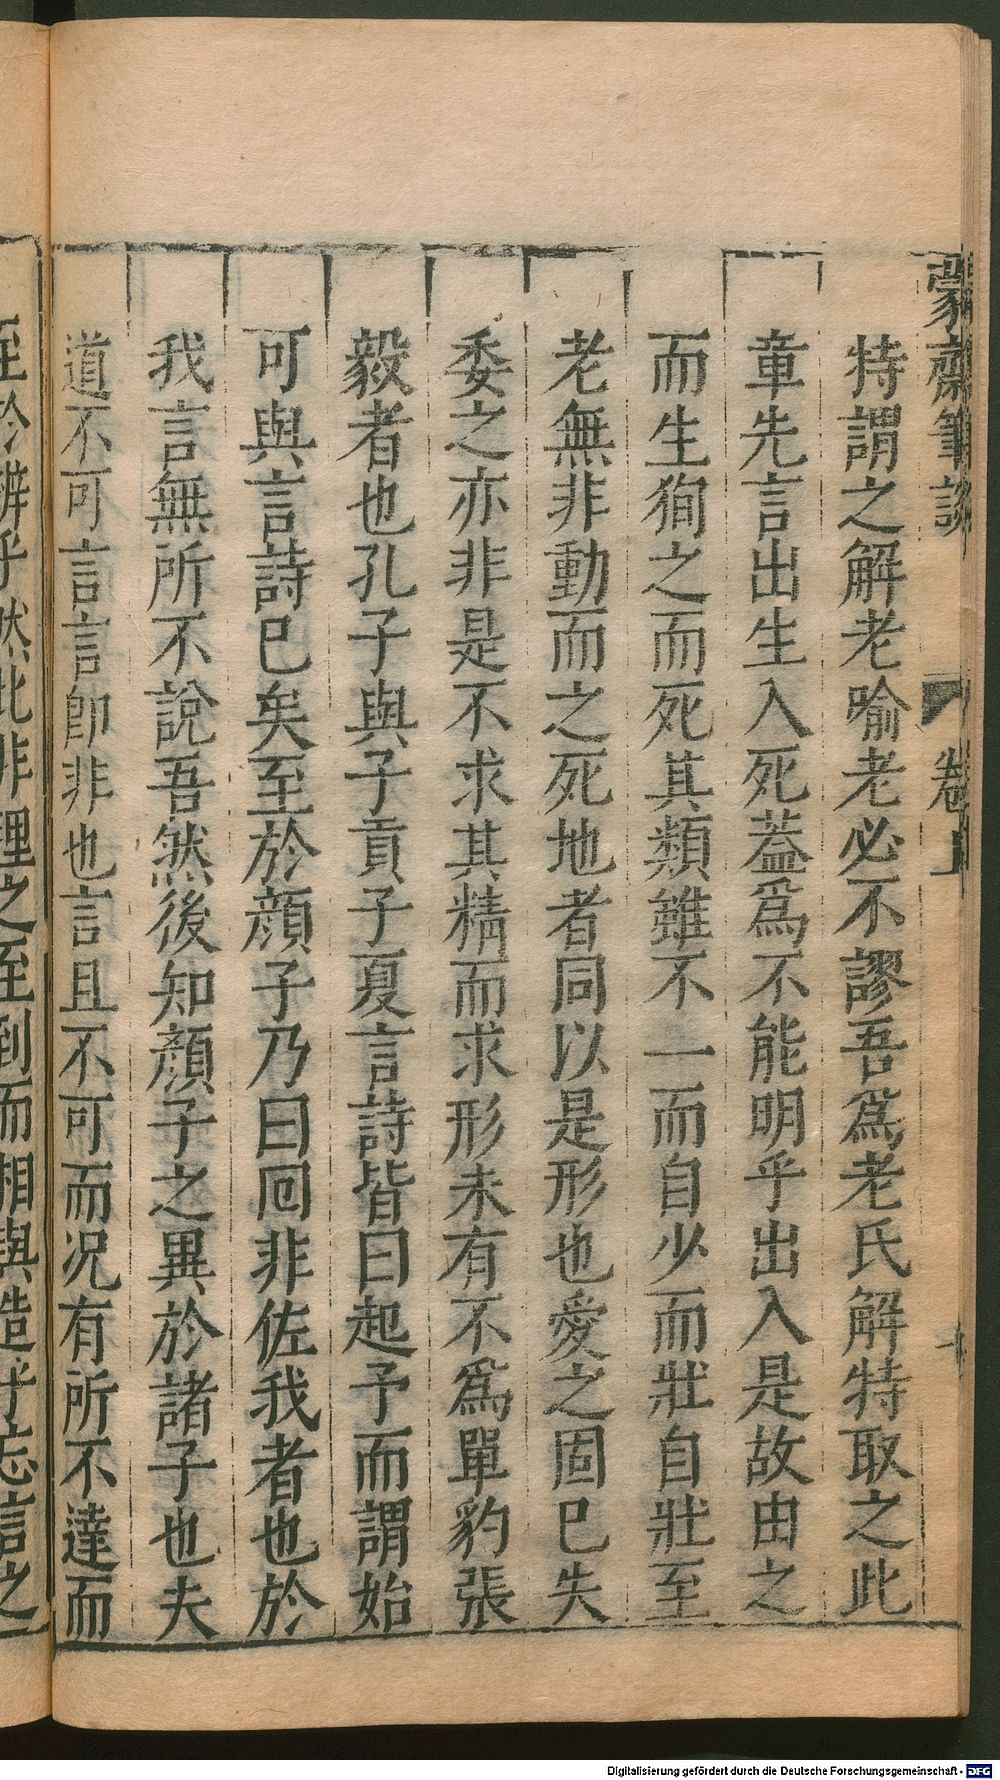 蒙齋筆談
卷上
特謂之解老喻老必不謬吾爲老氏解特取之此
章先言出生入死蓋爲不能明乎出入是故由之
而生狥之而死其類雖不一而自少而壯自壯至
老無非動而之死地者同以是形也愛之固已失
委之亦非是不求其精而求形未有不爲單豹張
毅者也孔子與子貢子夏言詩皆曰起予而謂始
可與言詩已矣至於顔子乃曰囘非佐我者也於
我言無所不說吾然後知顏子之異於諸子也夫
道不可言言卽非也言且不可而况有所不達而
至於辨乎然此非理之至到而相與造乎忘言之
Digitalisierung gefördert durch die Deutsche Forschungsgemeinschaft - DFG